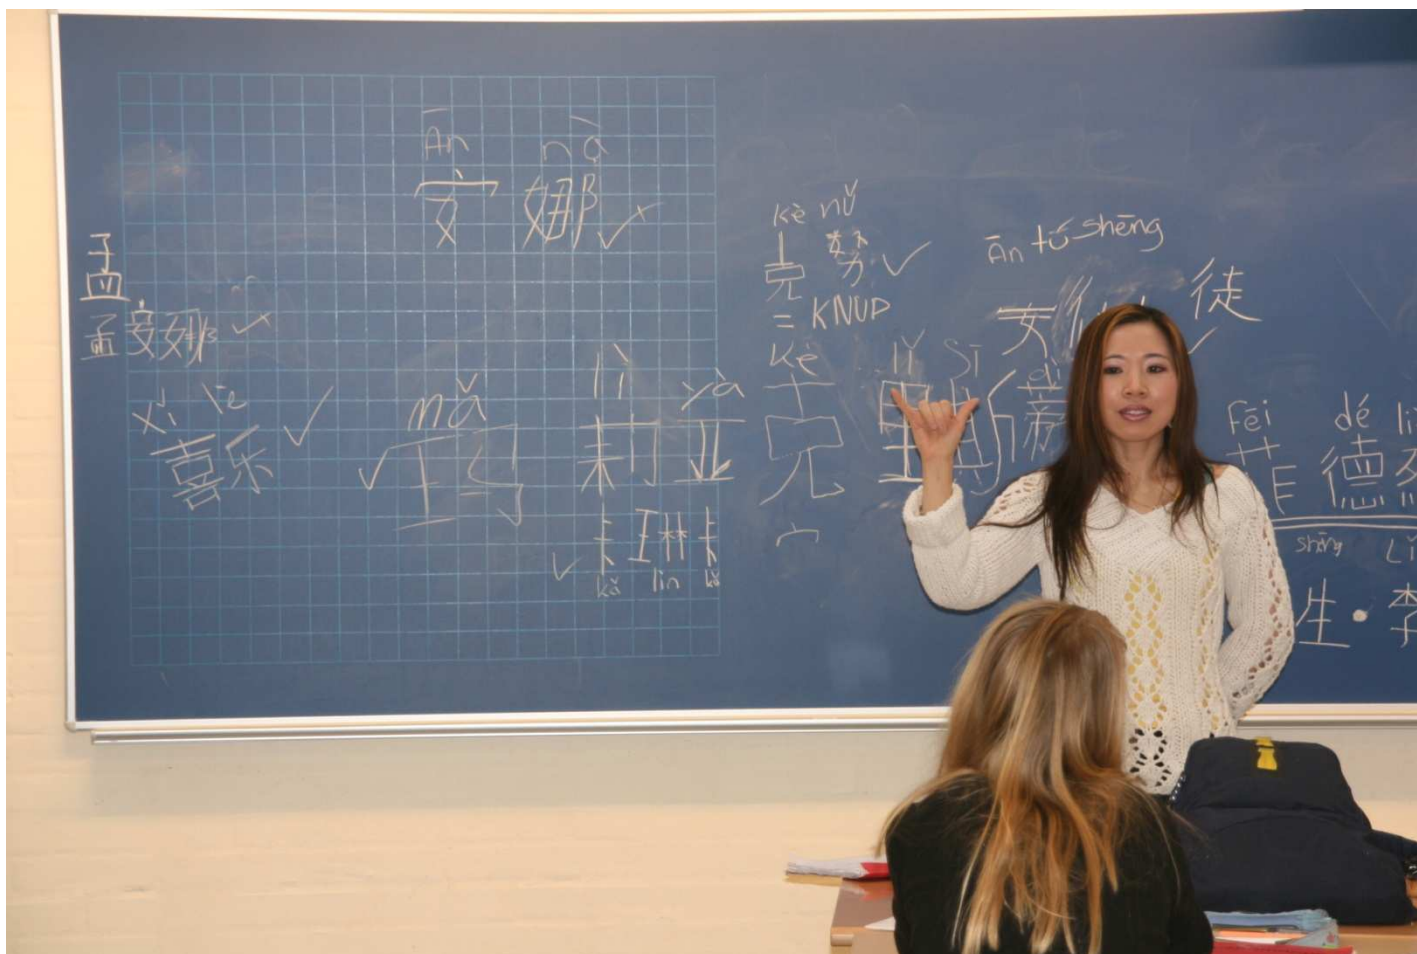 Ān nà
安娜
孟
孟安娜
xǐ lè
喜乐
mǎ lì yà
玛莉亚
卡琳卡
kǎ lin kǎ
kè nǔ
克努
= KNUP
kè lǐ sī dì
克里斯蒂
Ān tú shēng
安 徒
Fēi dé
菲德烈
shēng Lǐ
生·李